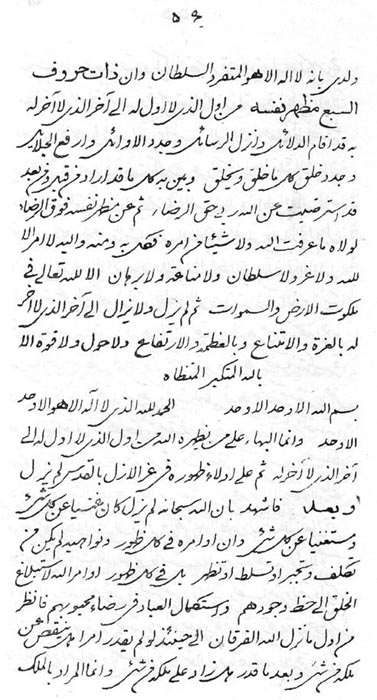 ٥٩
ولدی بانه لا اله الا هو المتفرد السلطان وان ذات حروف
السبع مظهر نفسه من اول الذی لا اول له الی آخر الذی لا آخر له
به قد اقام الدلائل وانزل الرسائل وجدد الاوائل وارفع الجلائل
وجدد خلق کل ما خلق ویخلق وبین به کل ما قد اراد فرقه ثم بعد
قد استرضیت عن الله ربی حق الرضاء ثم عن مظهر نفسه فوق الرضاء
لولاه ما عرفت الله ولا شیئا من امره فکل به ومنه والیه لا امر الا
لله ولا عز ولا سلطان ولا مناعة ولا برهان الا لله تعالی فی
ملکوت الارض والسموات ثم لم یزل ولا یزال الی آخر الذی لا آخر
له بالعزة والامتناع وبالعظمة والارتفاع ولا حول ولا قوة الا
بالله المتکبر
بسم الله الاوحد الاوحد الحمد لله الذی لا اله الا هو الاوحد
الاوحد وانما البهاء علی من یظهره الله من اول الذی لا اول له الی
آخر الذی لا آخر له ثم علی ادلاء ظهوره فی عز الازل بالقدس لم یزل
وبعد فاشهد بان الله سبحانه لم یزل کان غنیا عن کل شئ
ومستغنیا عن کل شئ وان اوامره فی کل ظهور ونواهیه لم یکن من
تکلف وتجبر او تسلط او تنظر بل فی کل ظهور اوامر الله لاستبلاغ
الخلق الی حظ وجودهم واستکمال العباد فی رضاء محبوبهم فانظر
من اول ما نزل الله الفرقان الی حینئذ لو لم یقدر امرا هل ینقص عن
ملکه من شئ وبعد ما قدر هل زاد علی ملکه من شئ وانما المراد بالملک